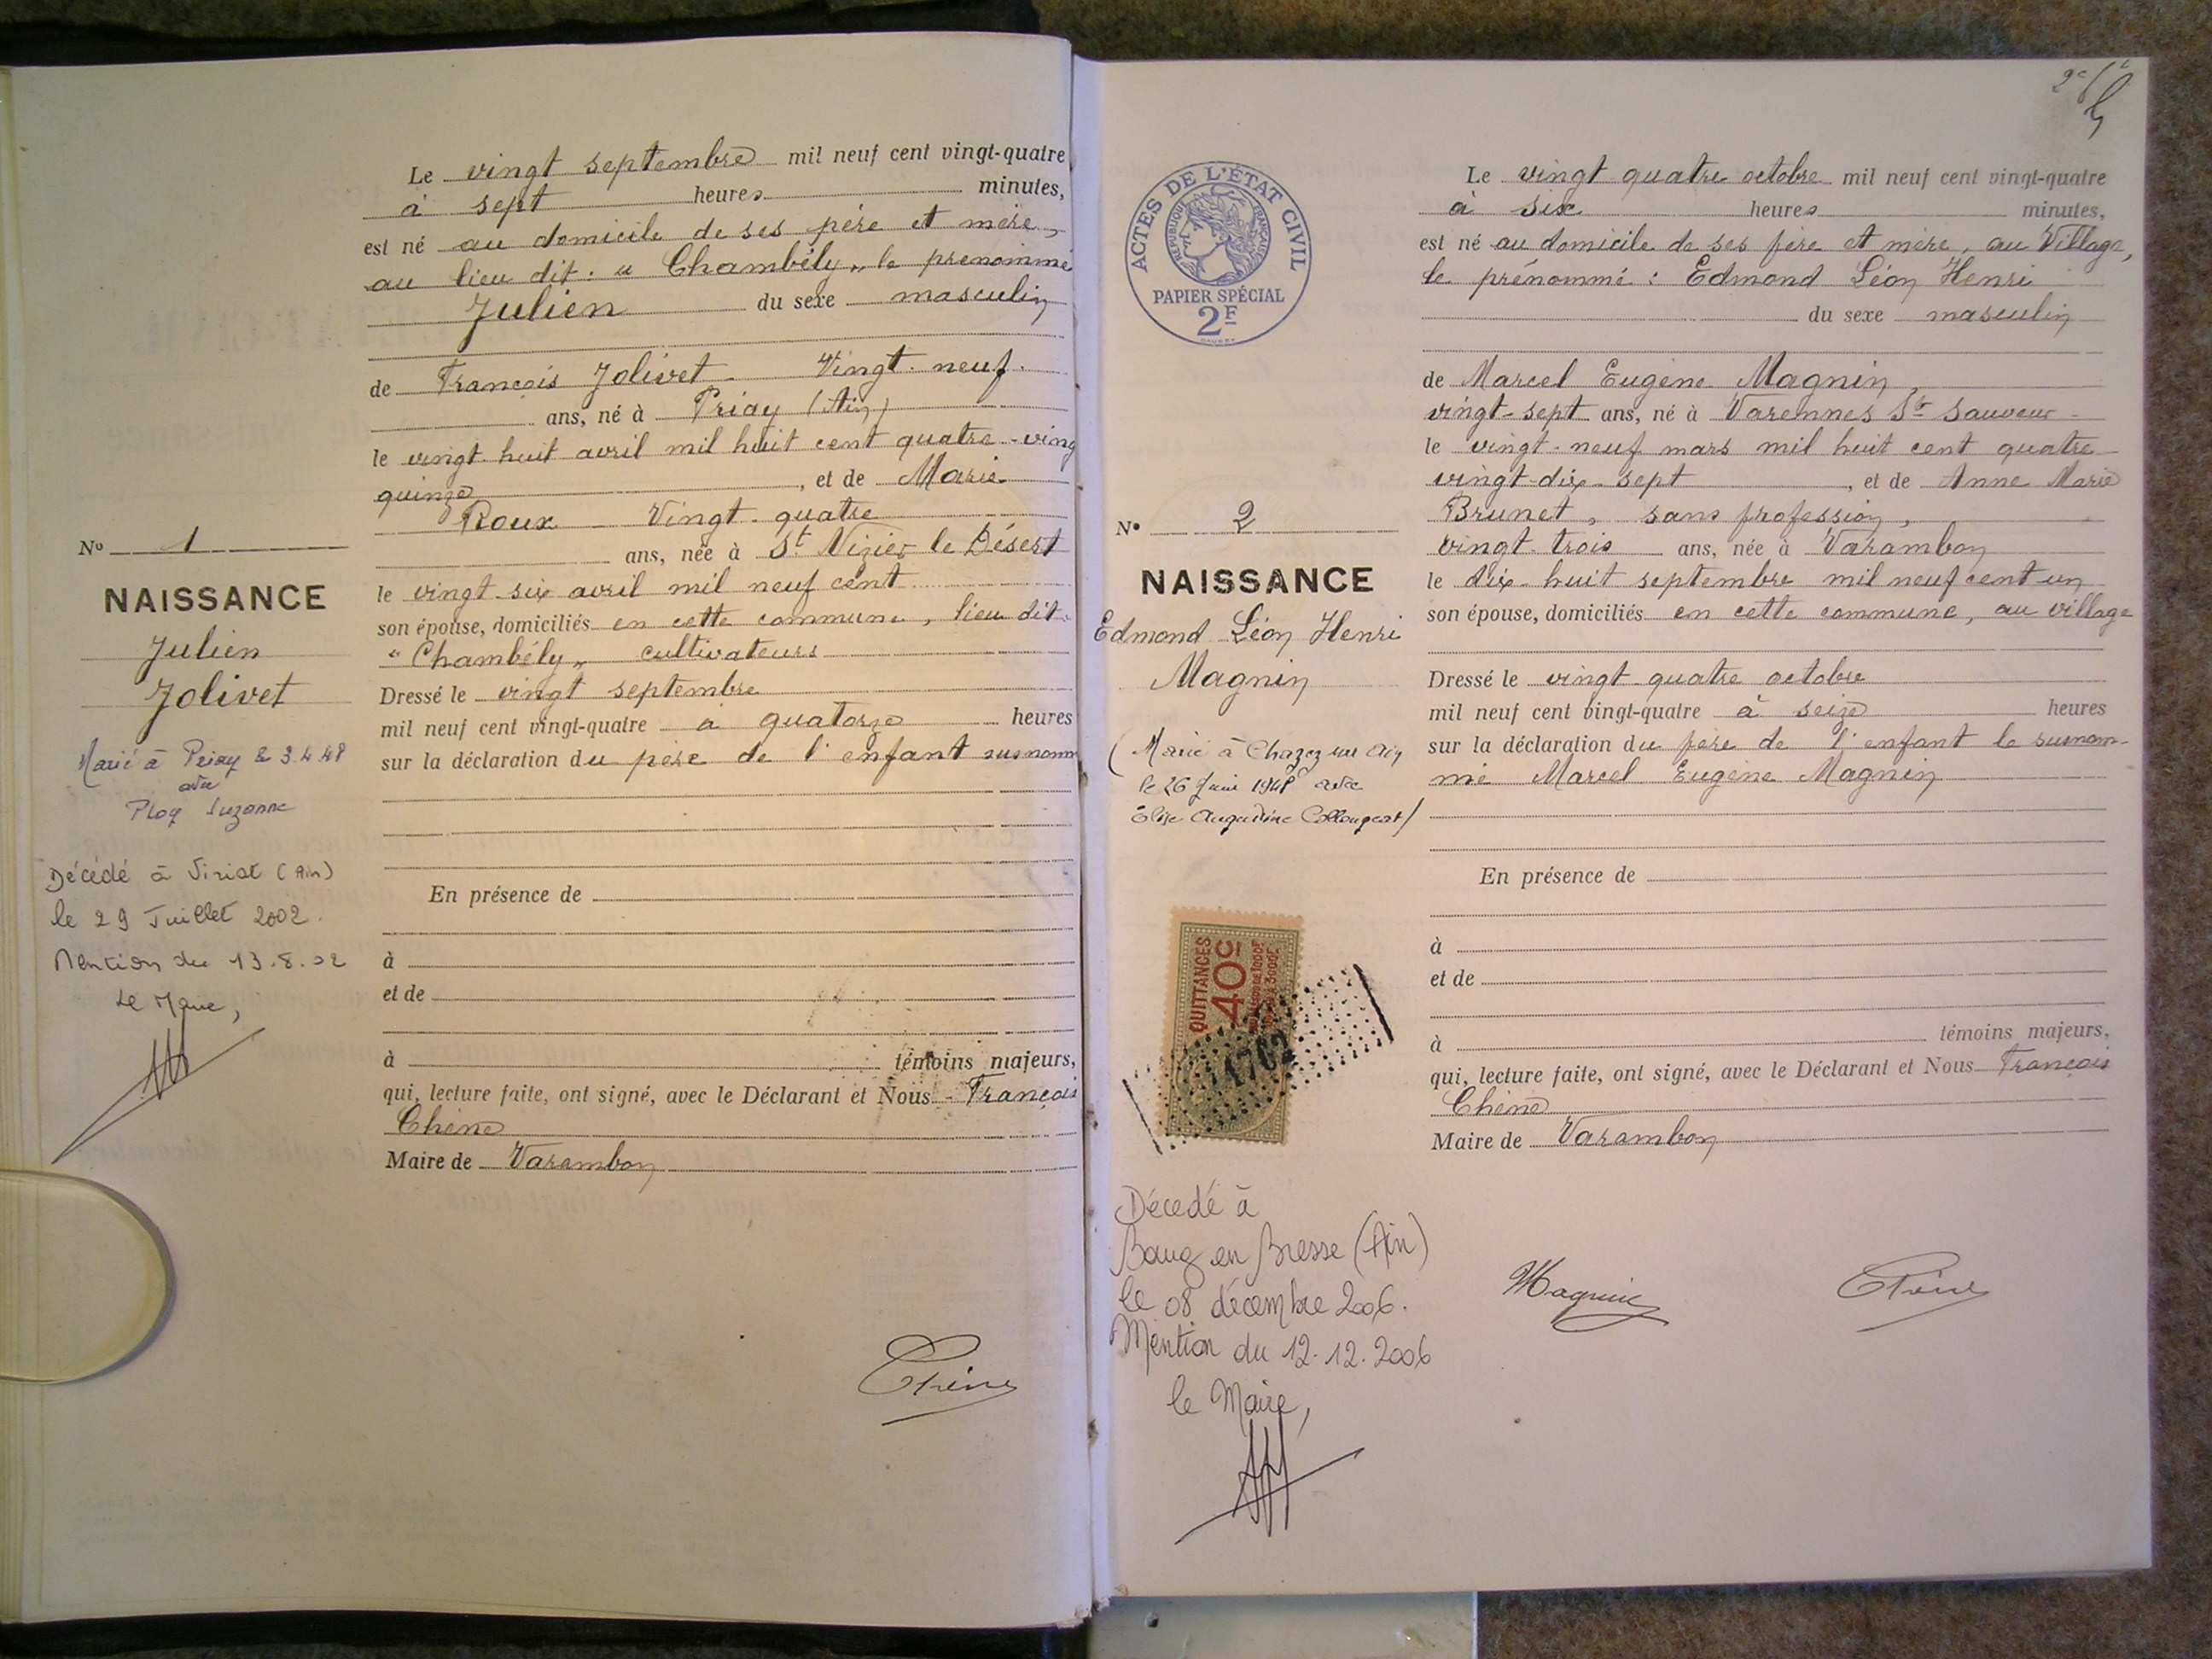 Le vingt septembre mil neuf cent vingt-quatre
à sept heures minutes,
est né au domicile de ses père et mère,
au lieu dit : " Chambély " le prénommé
Julien du sexe masculin
de François Jolivet Vingt-neuf
ans, né à Priay (Ain)
le vingt-huit avril mil huit cent quatre-ving
quinze, et de Marie
Roux Vingt-quatre
ans, née à St Nizier le Désert
le vingt-six avril mil neuf cent
son épouse, domiciliés en cette commune, lieu dit
"Chambély" cultivateurs
Dressé le vingt septembre
mil neuf cent vingt-quatre à quatorze heures
sur la déclaration du père de l'enfant susnomm
En présence de
à
et de
à témoins majeurs,
qui, lecture faite, ont signé, avec le Déclarant et Nous François
Chêne
Maire de Varambon
Chêne
No 1
NAISSANCE
Julien
Jolivet
Marié à Priay le 3.4.48
avec
Suzanne
Décédé à Viriat (Ain)
le 29 Juillet 2002.
Mention du 13.8.02
Le Maire,
2F
ACTES DE L'ÉTAT CIVIL
RÉPUBLIQUE FRANÇAISE
PAPIER SPÉCIAL
2F
No 2
NAISSANCE
Edmond Léon Henri
Magnin
(Marié à Chazey sur Ain
le 26 Juin 1948 avec
Élise Augustine Collongeat)
QUITTANCES
40c
Décédé à
Bourg en Bresse (Ain)
le 08 décembre 2006.
Mention du 12.12.2006
le Maire,
Le vingt-quatre octobre mil neuf cent vingt-quatre
à six heures minutes,
est né au domicile de ses père et mère, au Village,
le prénommé : Edmond Léon Henri
du sexe masculin
de Marcel Eugène Magnin,
vingt-sept ans, né à Varennes St Sauveur
le vingt-neuf mars mil huit cent quatre
vingt-dix-sept, et de Anne Marie
Brunet, sans profession,
vingt-trois ans, née à Varambon
le dix-huit septembre mil neuf cent un
son épouse, domiciliés en cette commune, au village
Dressé le vingt-quatre octobre
mil neuf cent vingt-quatre à seize heures
sur la déclaration du père de l'enfant le surnom-
mé Marcel Eugène Magnin
En présence de
à
et de
à témoins majeurs,
qui, lecture faite, ont signé, avec le Déclarant et Nous François
Chêne
Maire de Varambon
Magnin Chêne